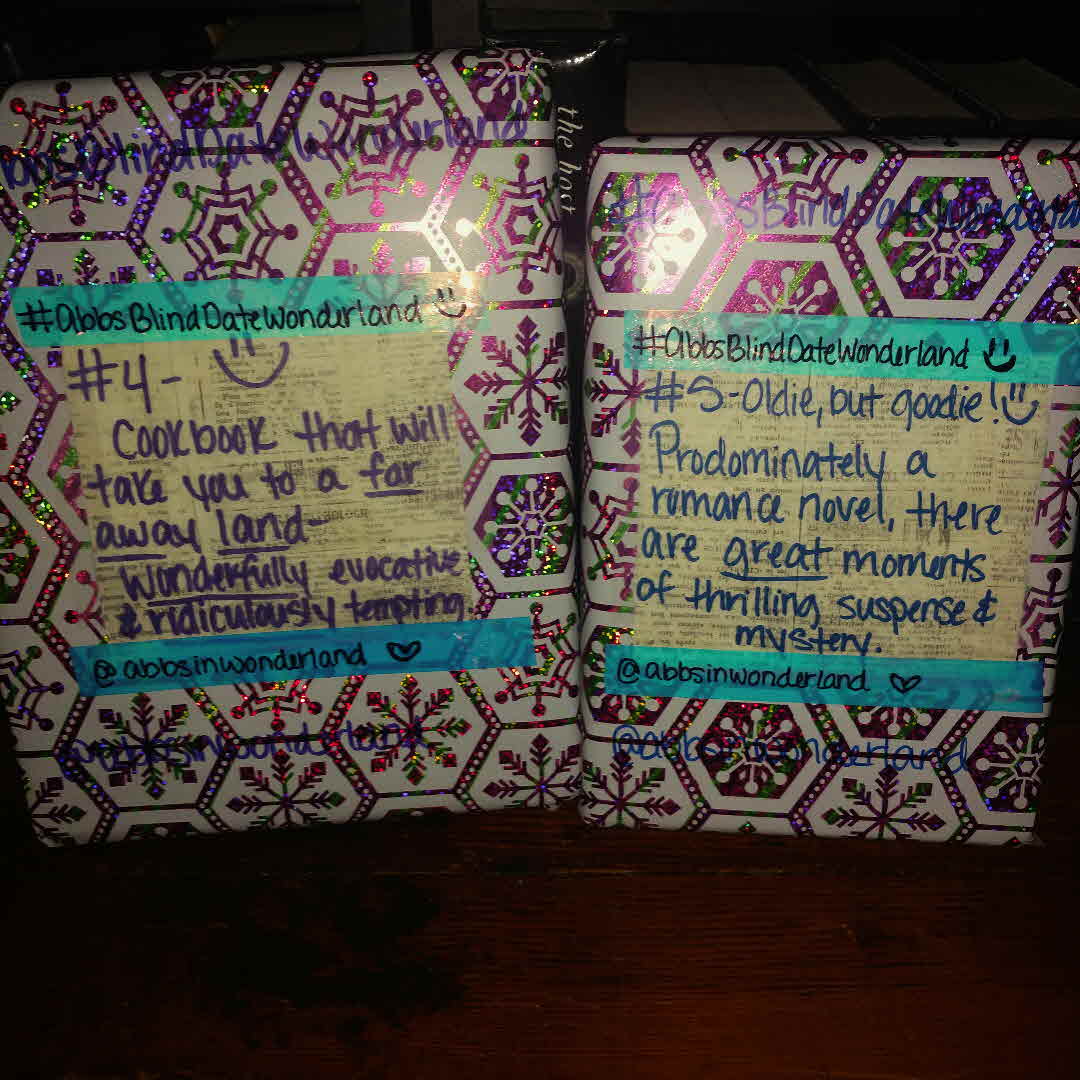 #abbsBlindDateWonderland
#abbsBlindDateWonderland
#4-
Cookbook that will
take you to a far
away land-
wonderfully evocative
& ridiculously tempting.
@abbsinwonderland
@abbsinwonderland
the host
#abbsBlindDateWonderland
#5-Oldie, but goodie!
Prodominately a
romance novel, there
are great moments
of thrilling suspense &
mystery.
@abbsinwonderland
@abbsinwonderland